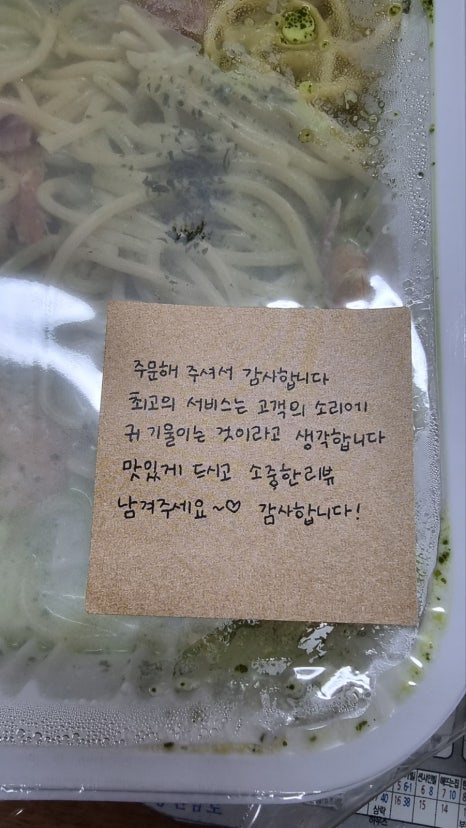 주문해 주셔서 감사합니다
최고의 서비스는 고객의 소리에
귀 기울이는 것이라고 생각합니다
맛있게 드시고 소중한리뷰
남겨주세요~♡ 감사합니다!
5 6-1 6 8 7 10
40 16 38 15 14
삼락